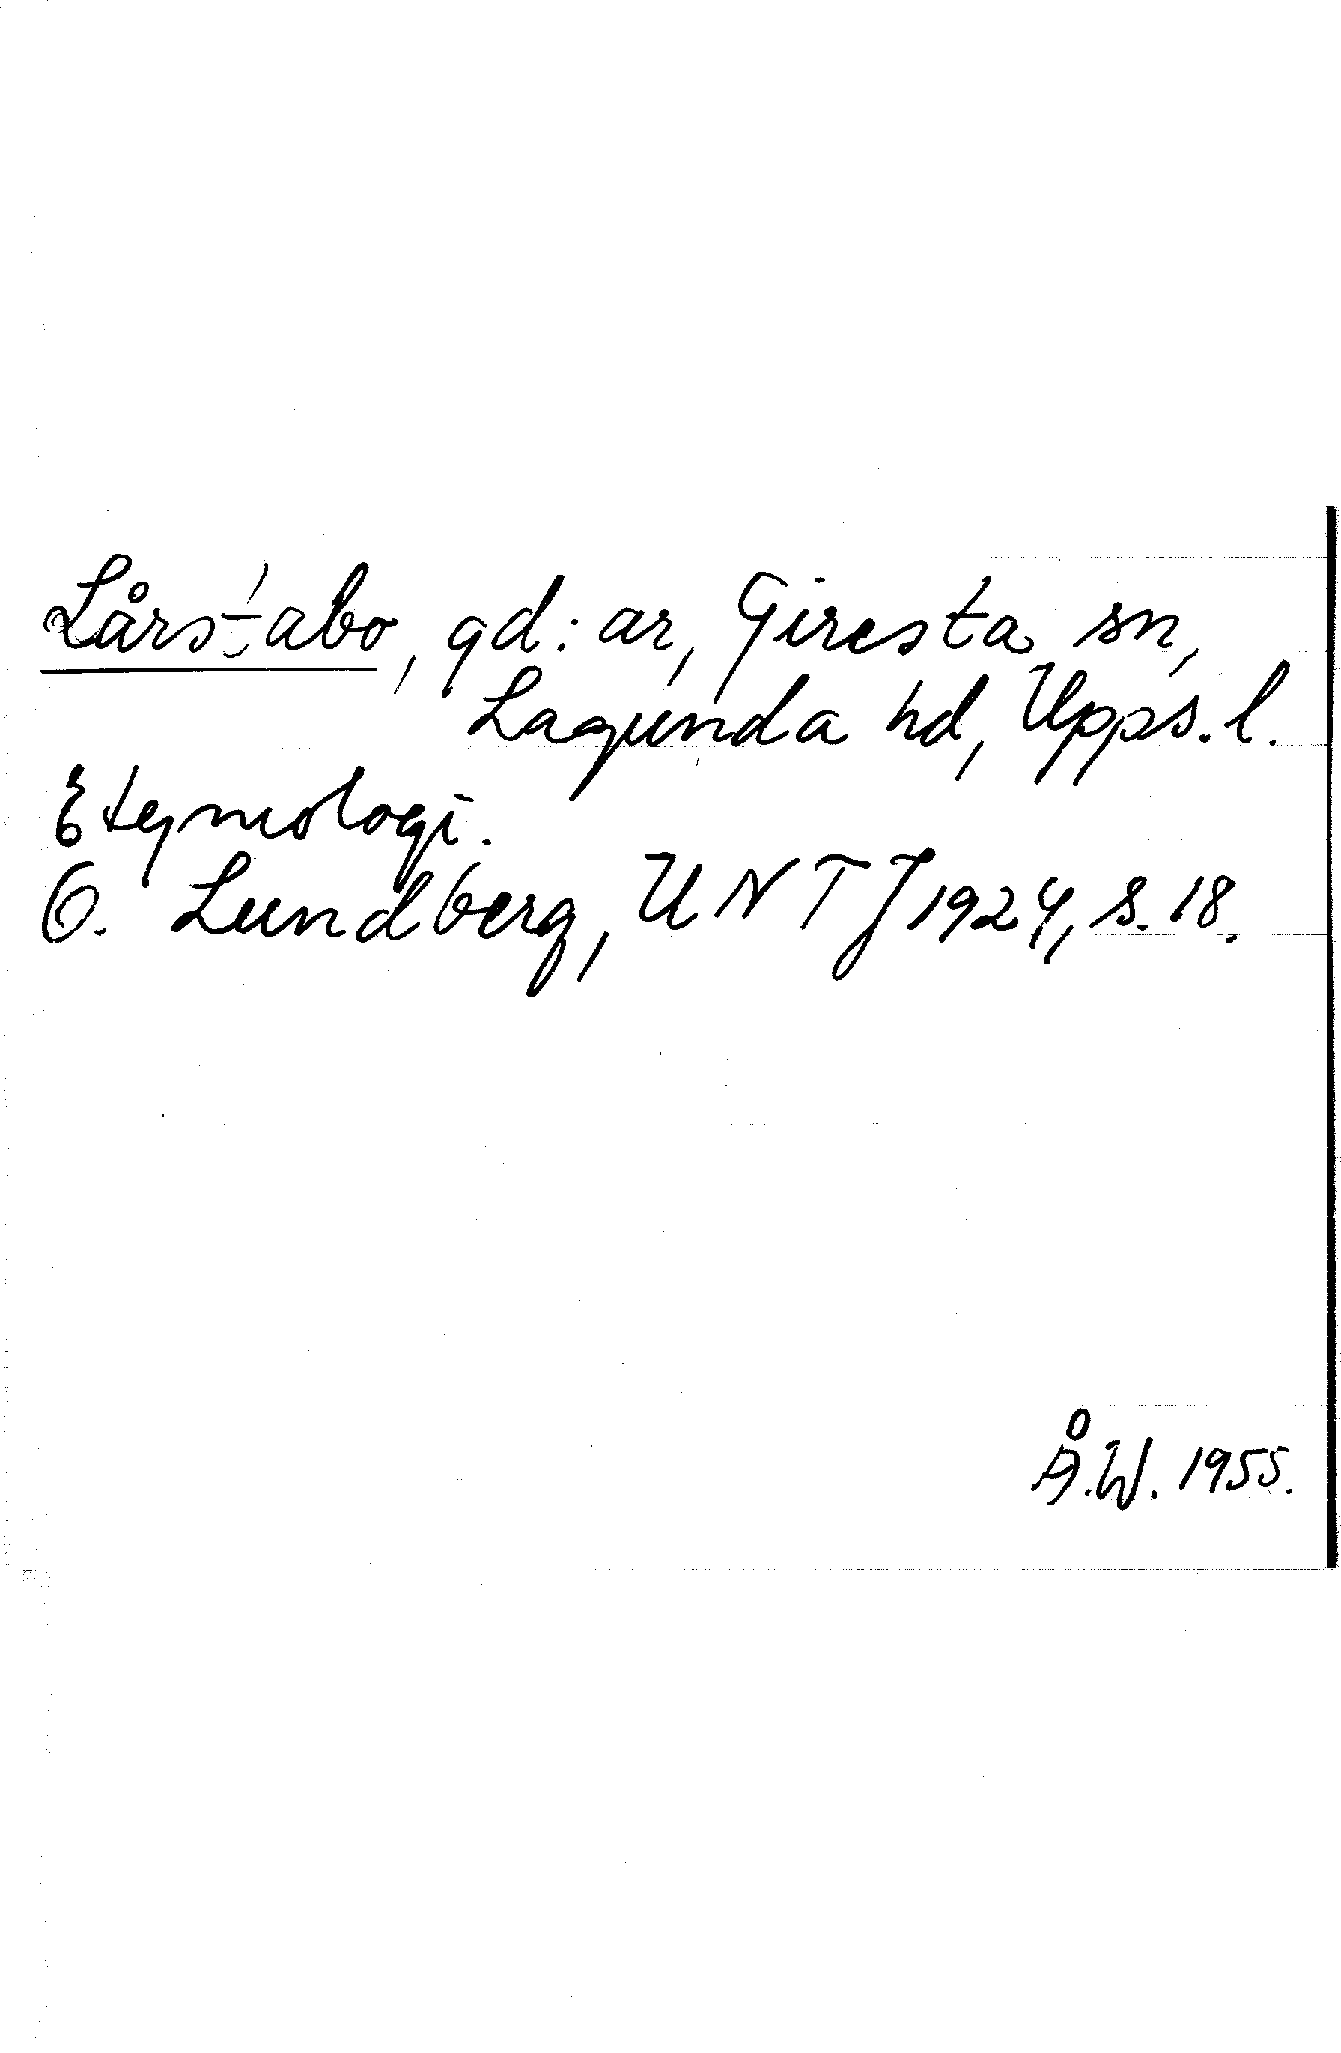 Lårstabo, gd:ar, Giresta sn,
Lagunda hd, Upps. l.
Etymologi.
O. Lundberg, UNTJ 1924, s. 18.
Å.W. 1955.